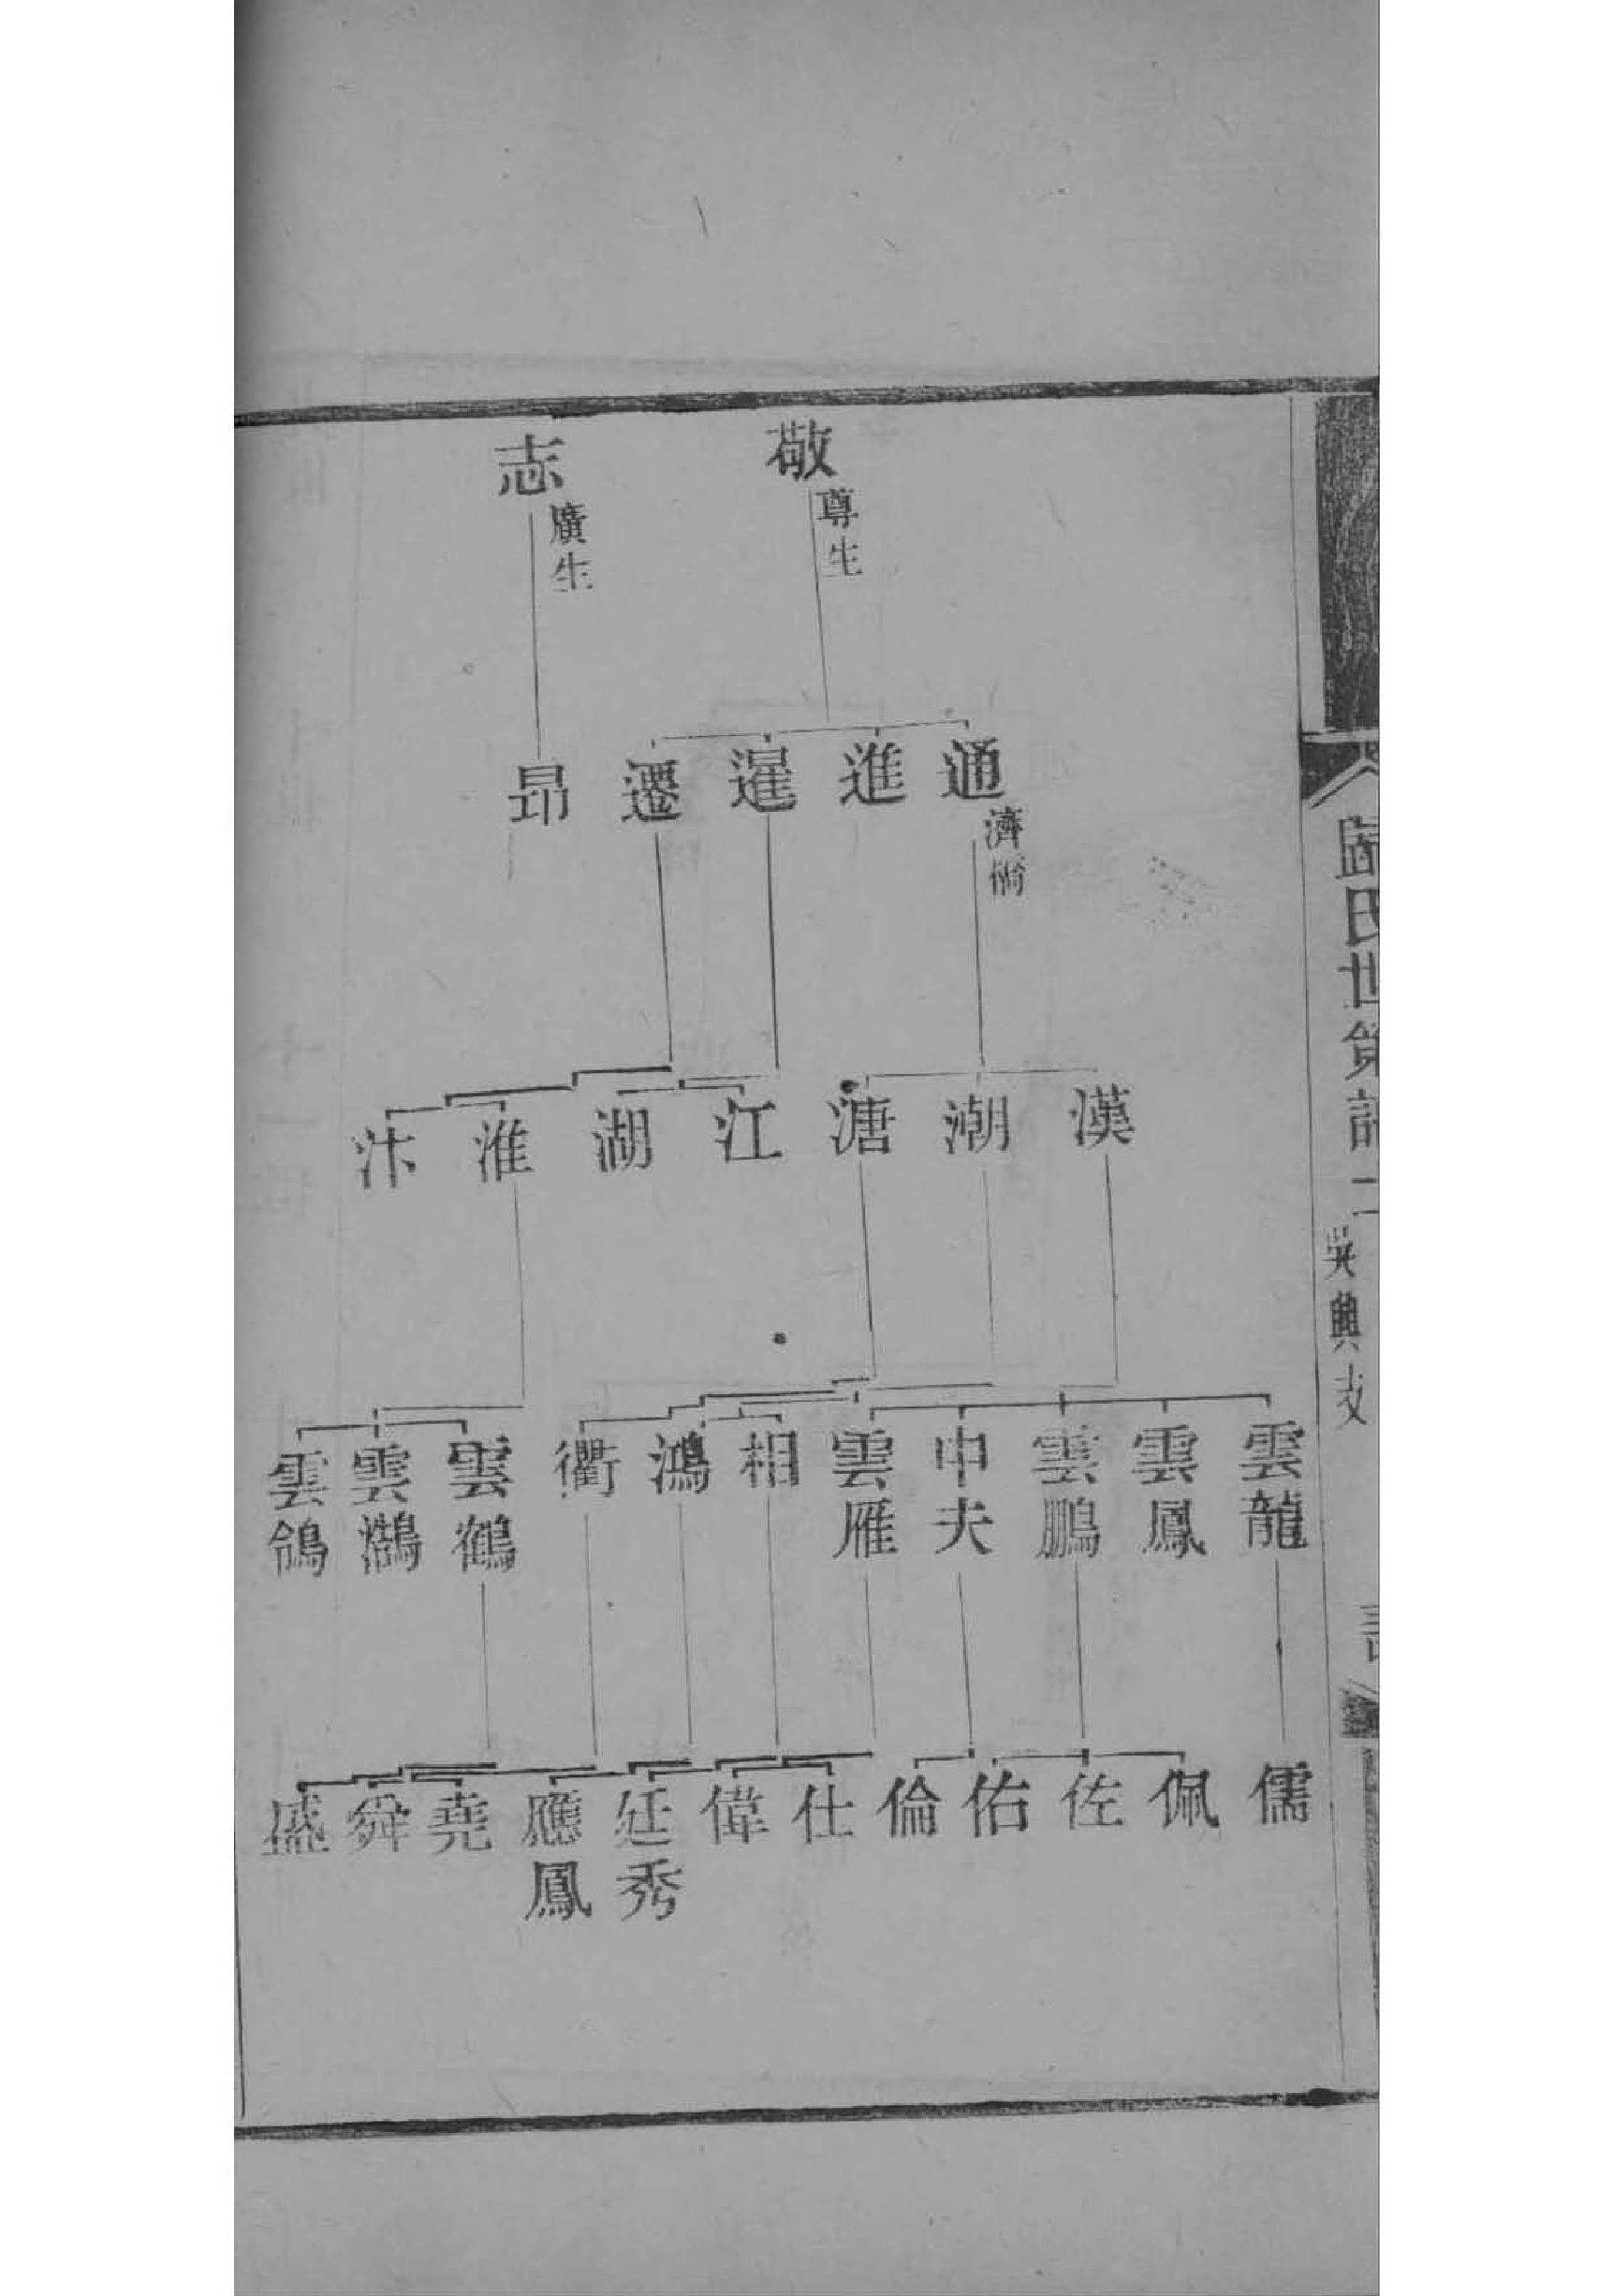 歸氏世第譜二
吳興支
敬
尊生
志
廣生
通
濟川
進
暹
遷
昂
漢
潮
溏
江
湖
淮
汴
雲龍
雲鳳
雲鵬
中夫
雲雁
相
鴻
衢
雲鶴
雲鷀
雲鴒
儒
佩
佐
佑
倫
仕
偉
廷秀
應鳳
堯
舜
盛